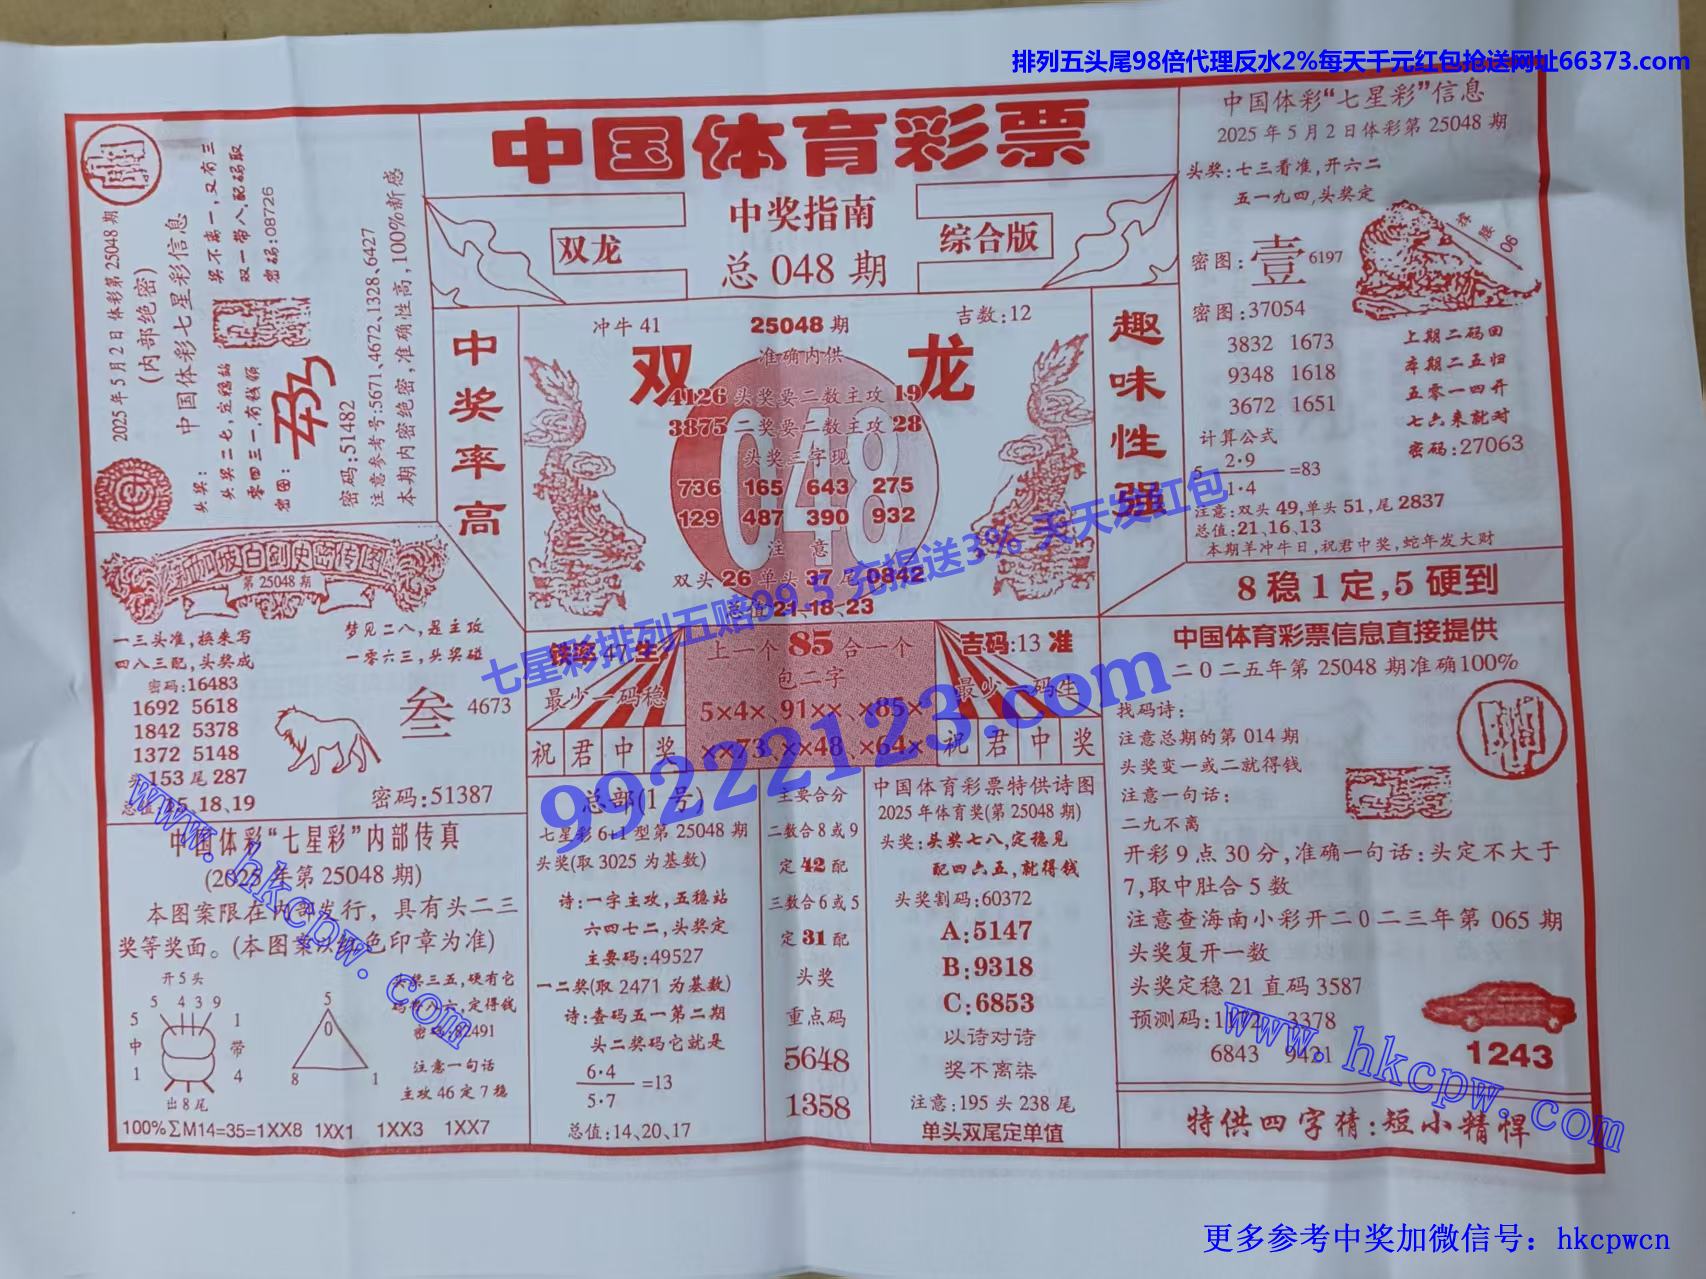 排列五头尾98倍代理反水2%每天千元红包抢送网址66373.com
中国体育彩票
中奖指南
双龙
综合版
总 048 期
2025年5月2日体彩第25048期
(内部绝密)
中国体彩七星彩信息
头奖:
头奖二七,定稳站
零四三一,有钱领
密图:
奖不离一,又有三
双一带八,配码取
密码:08726
密码:51482
注意参考号:5671、4672、1328、6427
本期内密绝密,准确性高,100%新感
中奖率高
冲牛 41
25048 期
吉数:12
双
龙
准确内供
4126 头奖要二数主攻 19
3875 二奖要二数主攻 28
头奖三字现
048
736 165 643 275
129 487 390 932
注 意
双头 26 单头 37 尾 0842
总值 21、18、23
趣味性强
中国体彩“七星彩”信息
2025年5月2日体彩第25048期
头奖:七三看准,开六二
五一九四,头奖定
密图: 壹 6197
密图:37054
3832 1673
9348 1618
3672 1651
上期二码回
本期二五归
五零一四开
七六来就对
密码:27063
计算公式
5 2·9
1·4
=83
注意:双头 49,单头 51,尾 2837
总值:21、16、13
本期羊冲牛日,祝君中奖,蛇年发大财
8 稳 1 定,5 硬到
新加坡白剑史密传图
第 25048 期
一三头准,换来写
四八三配,头奖成
梦见二八,是主攻
一零六三,头奖碰
密码:16483
1692 5618
1842 5378
1372 5148
头 153 尾 287
总值:15、18、19
叁 4673
密码:51387
铁率 47 生
最少一码稳
上一个 85 合一个
包二字
5×4×、91××、×85×
××73、××48、×64×
吉码:13 准
最少一码生
祝君中奖
祝君中奖
中国体彩“七星彩”内部传真
(2025 年第 25048 期)
本图案限在内部发行，具有头二三
奖等奖面。(本图案以红色印章为准)
开 5 头
5 4 3 9
5 中 1
1 带 4
出 8 尾
5
0
8 1
头奖三五,硬有它
定得钱
密码:82491
注意一句话
主攻 46 定 7 稳
100%∑M14=35=1XX8 1XX1 1XX3 1XX7
总部(1号)
七星彩 6+1 型第 25048 期
头奖(取 3025 为基数)
诗:一字主攻,五稳站
六四七二,头奖定
主要码:49527
一二奖(取 2471 为基数)
诗:查码五一第二期
头二奖码它就是
6·4
5·7
=13
总值:14、20、17
主要合分
二数合 8 或 9
定 42 配
三数合 6 或 5
定 31 配
头奖
重点码
5648
1358
中国体育彩票特供诗图
2025 年体育奖(第 25048 期)
头奖:头奖七八,定稳见
配四六五,就得钱
头奖割码:60372
A:5147
B:9318
C:6853
以诗对诗
奖不离染
注意:195 头 238 尾
单头双尾定单值
中国体育彩票信息直接提供
二0二五年第 25048 期准确100%
找码诗:
注意总期的第 014 期
头奖变一或二就得钱
注意一句话:
二九不离
开彩 9 点 30 分,准确一句话:头定不大于
7,取中肚合 5 数
注意查海南小彩开二0二三年第 065 期
头奖复开一数
头奖定稳 21 直码 3587
预测码: 3378
6843 9421
1243
特供四字猜:短小精悍
七星彩排列五赔99.3 充提送3% 天天发红包
99222123.com
www.hkcpw.com
www.hkcpw.com
更多参考中奖加微信号：hkcpwcn